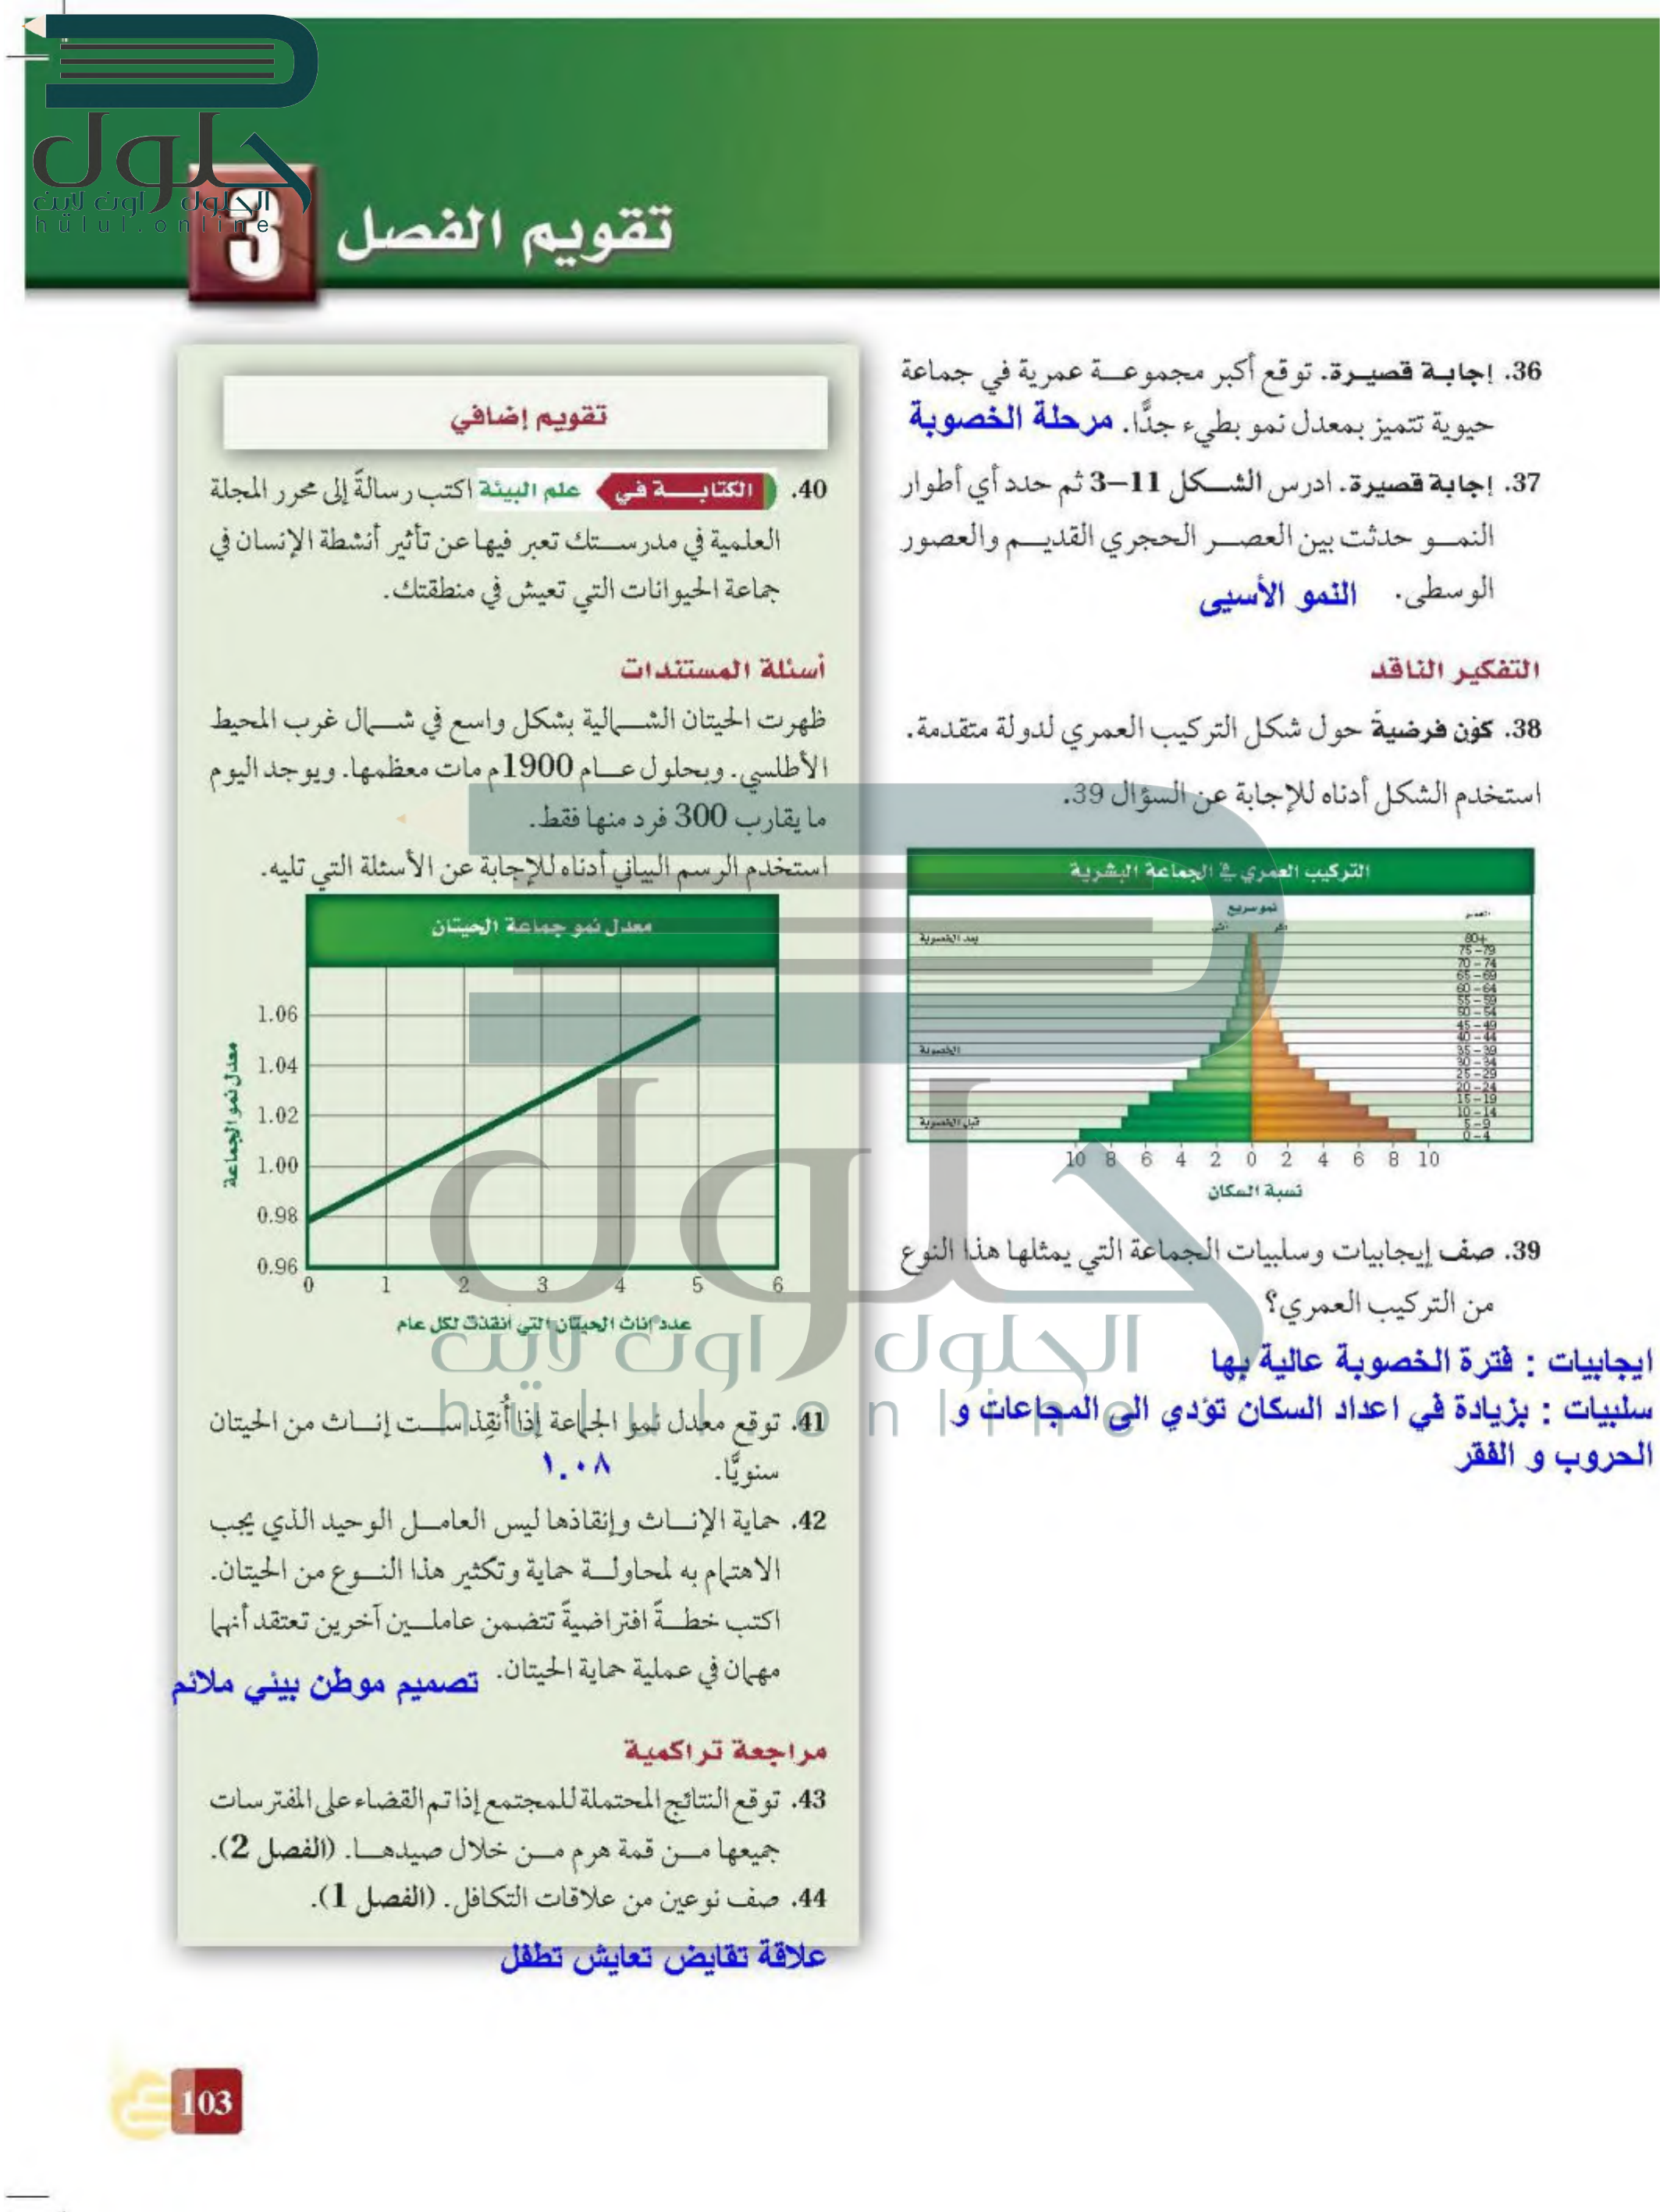 حلول
الحلول اون لاين
hulul.online
تقويم الفصل 3
36. إجابة قصيرة. توقع أكبر مجموعة عمرية في جماعة
حيوية تتميز بمعدل نمو بطيء جدًّا. مرحلة الخصوبة
37. إجابة قصيرة. ادرس الشكل 11–3 ثم حدد أي أطوار
النمو حدثت بين العصر الحجري القديم والعصور
الوسطى. النمو الأسيى
التفكير الناقد
38. كوّن فرضيةً حول شكل التركيب العمري لدولة متقدمة.
استخدم الشكل أدناه للإجابة عن السؤال 39.
التركيب العمري في الجماعة البشرية
نمو سريع
العمر
ذكر
أنثى
بعد الخصوبة
الخصوبة
قبل الخصوبة
80+
75–79
70–74
65–69
60–64
55–59
50–54
45–49
40–44
35–39
30–34
25–29
20–24
15–19
10–14
5–9
0–4
10 8 6 4 2 0 2 4 6 8 10
نسبة السكان
39. صف إيجابيات وسلبيات الجماعة التي يمثلها هذا النوع
من التركيب العمري؟
ايجابيات : فترة الخصوبة عالية بها
سلبيات : بزيادة في اعداد السكان تؤدي الى المجاعات و
الحروب و الفقر
تقويم إضافي
40. الكتابة في علم البيئة اكتب رسالةً إلى محرر المجلة
العلمية في مدرستك تعبر فيها عن تأثير أنشطة الإنسان في
جماعة الحيوانات التي تعيش في منطقتك.
أسئلة المستندات
ظهرت الحيتان الشمالية بشكل واسع في شمال غرب المحيط
الأطلسي. وبحلول عام 1900م مات معظمها. ويوجد اليوم
ما يقارب 300 فرد منها فقط.
استخدم الرسم البياني أدناه للإجابة عن الأسئلة التي تليه.
معدل نمو جماعة الحيتان
معدل نمو الجماعة
1.06
1.04
1.02
1.00
0.98
0.96
0 1 2 3 4 5 6
عدد إناث الحيتان التي أنقذت لكل عام
41. توقع معدل نمو الجماعة إذا أُنقِذ ست إناث من الحيتان
سنويًّا. ١.٠٨
42. حماية الإناث وإنقاذها ليس العامل الوحيد الذي يجب
الاهتمام به لمحاولة حماية وتكثير هذا النوع من الحيتان.
اكتب خطةً افتراضيةً تتضمن عاملين آخرين تعتقد أنهما
مهمان في عملية حماية الحيتان. تصميم موطن بيئي ملائم
مراجعة تراكمية
43. توقع النتائج المحتملة للمجتمع إذا تم القضاء على المفترسات
جميعها من قمة هرم من خلال صيدها. (الفصل 2).
44. صف نوعين من علاقات التكافل. (الفصل 1).
علاقة تقايض تعايش تطفل
103
حلول
الحلول اون لاين
hulul.online